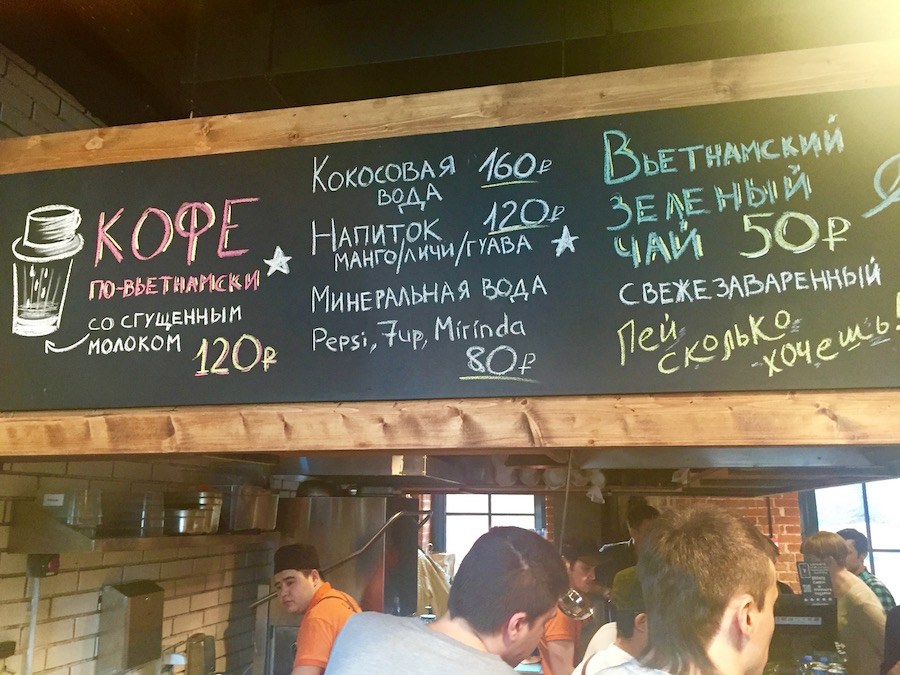 КОФЕ
ПО-ВЬЕТНАМСКИ
СО СГУЩЕННЫМ
МОЛОКОМ 120₽
КОКОСОВАЯ 160₽
ВОДА
НАПИТОК 120₽
МАНГО/ЛИЧИ/ГУАВА
МИНЕРАЛЬНАЯ ВОДА
Pepsi, 7up, Mirinda
80₽
ВЬЕТНАМСКИЙ
ЗЕЛЕНЫЙ
ЧАЙ 50₽
СВЕЖЕЗАВАРЕННЫЙ
Пей
сколько
хочешь!